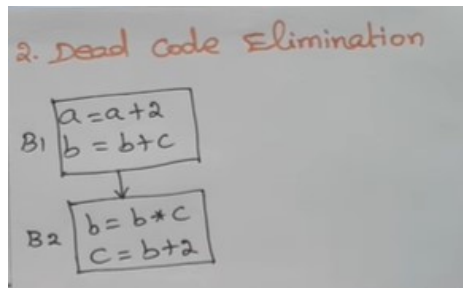 2. Dead Code Elimination
a = a+2
B1 b = b+c
b = b*c
B2 c = b+2